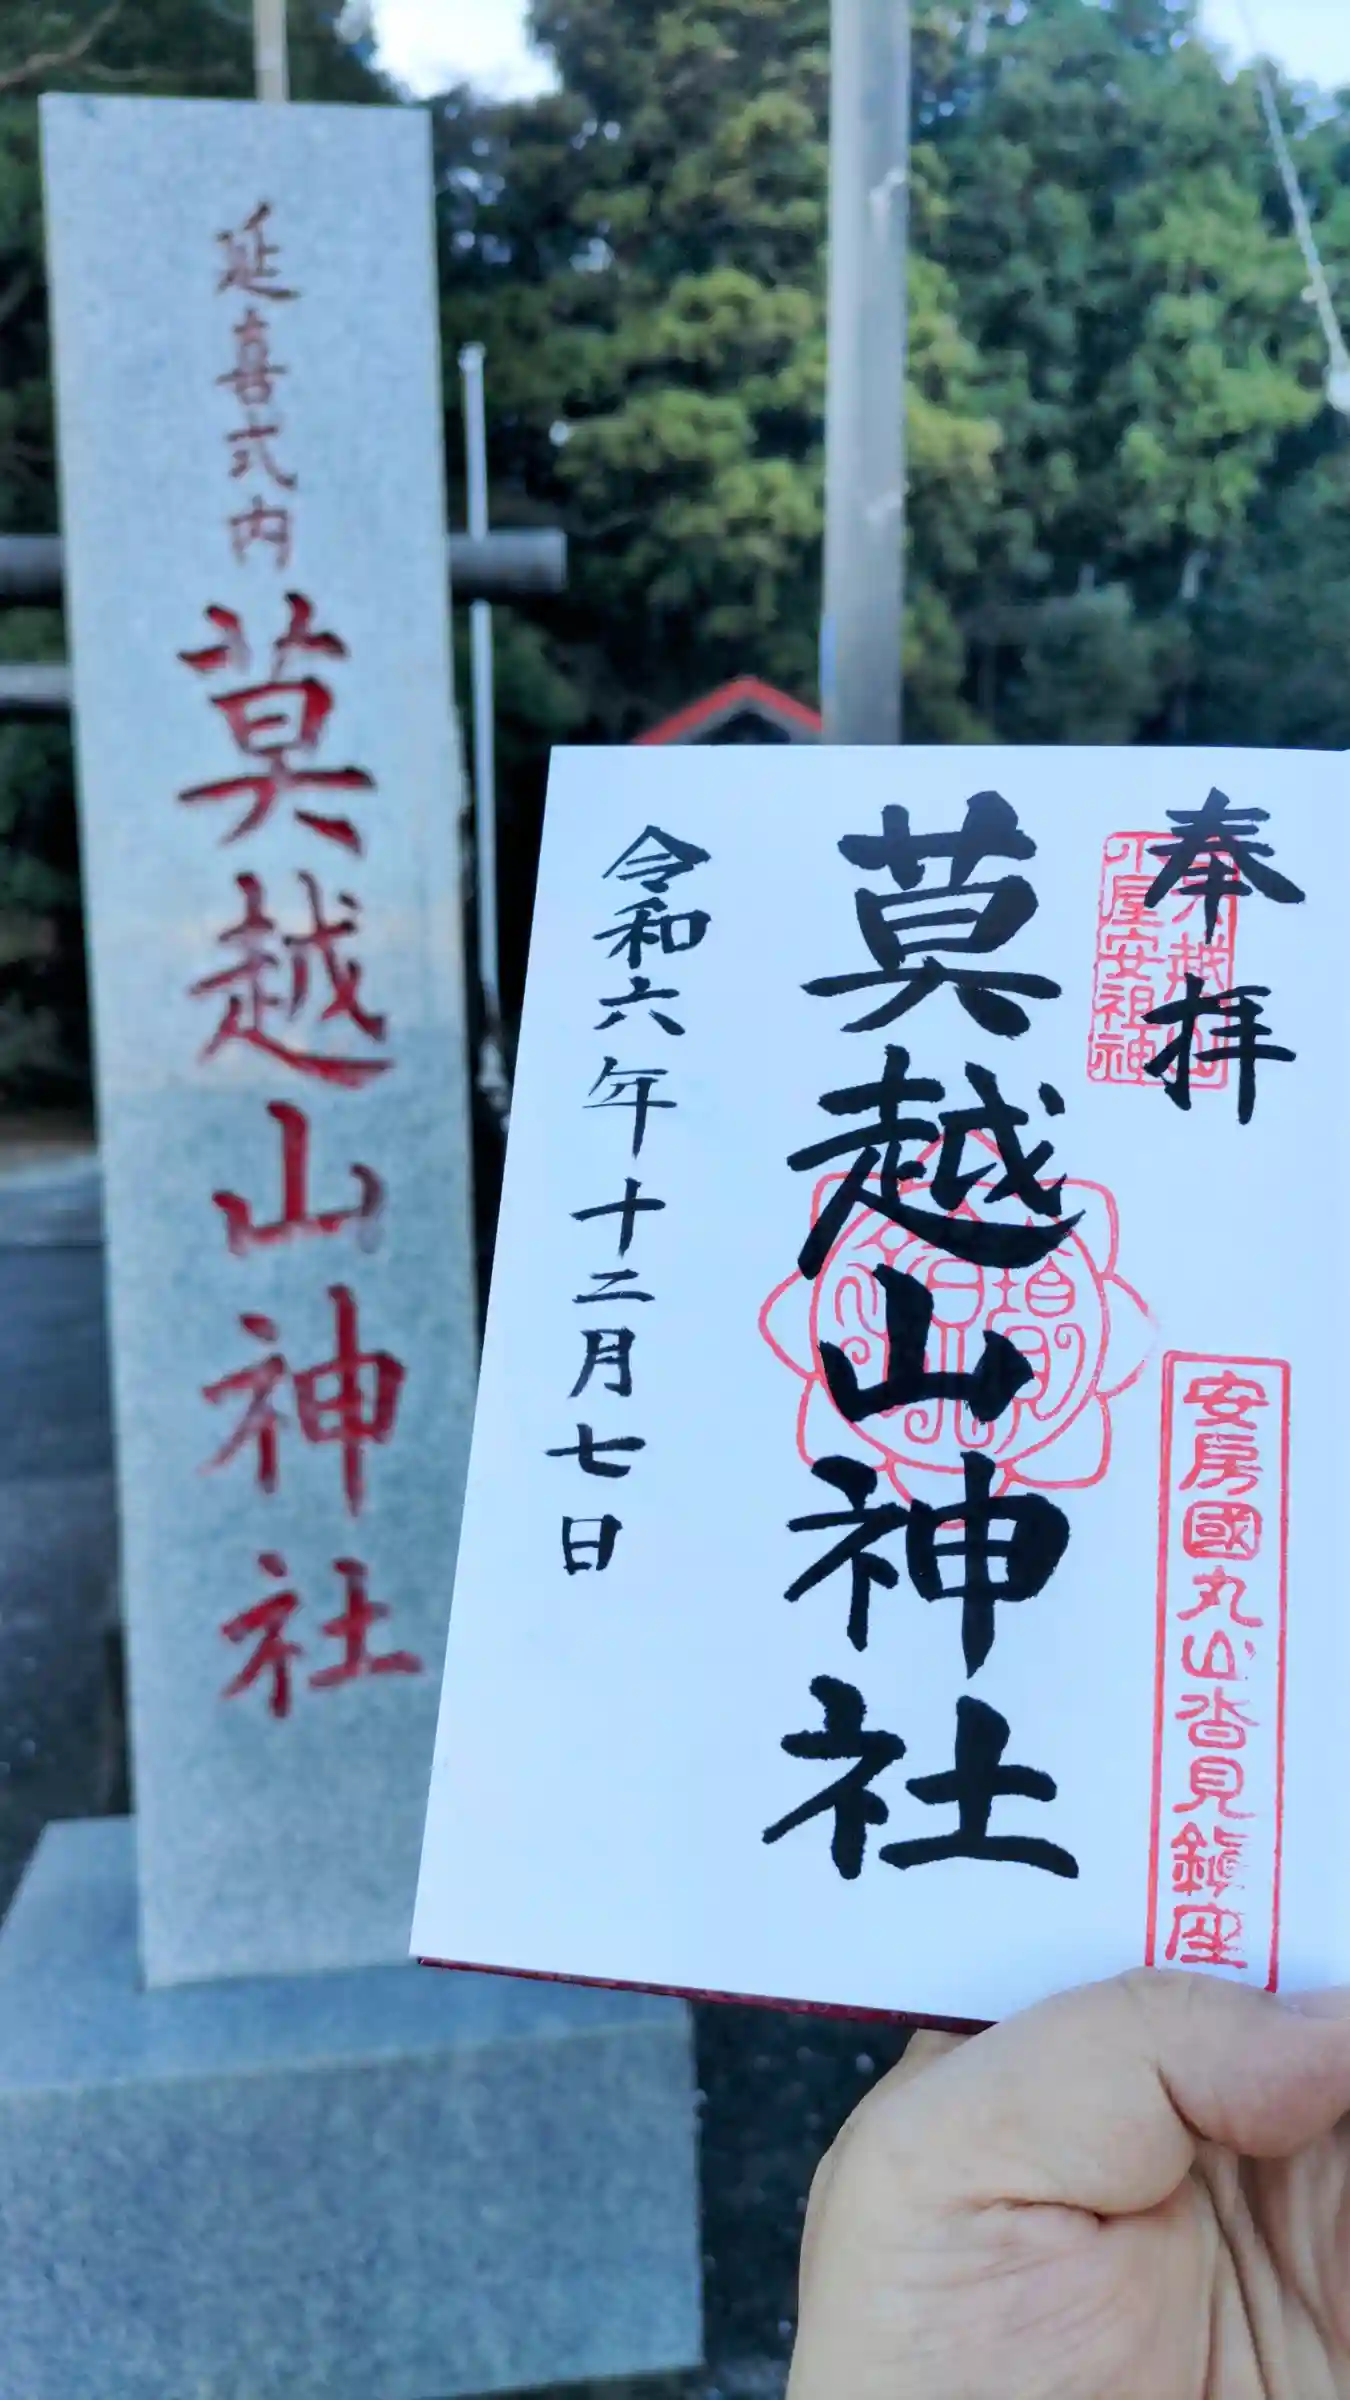 延喜式内
莫越山神社
奉拝
小屋安祖神
安房國丸山沓見鎮座
莫越山神社
令和六年十二月七日